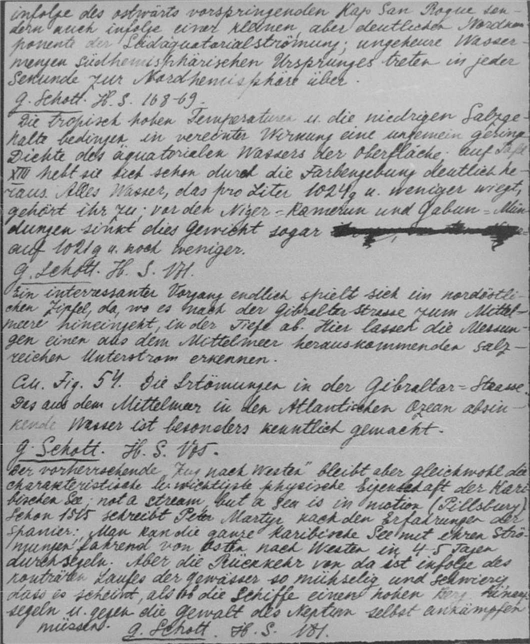 infolge des ostwärts vorspringenden Kap San Roque son-
dern auch infolge einer kleinen, aber deutlichen Nordkom-
ponente der Südäquatorialströmung; ungeheure Wasser
mengen südhemisphärischen Ursprunges treten in jeder
Sekunde zur Nordhemisphäre über.
G. Schott. H. S. 168-69.
Die tropisch hohen Temperaturen u. die niedrigen Salzge-
halte bedingen in vereinter Wirkung eine ungemein geringe
Dichte des äquatorialen Wassers der Oberfläche; auf Tafel
XIII hebt sie sich schon durch die Farbengebung deutlich he-
raus. Alles Wasser, das pro Liter 1024g u. weniger wiegt,
gehört ihr zu; vor den Niger=Kamerun und Gabun=Mün
dungen sinkt dies Gewicht sogar
auf 1021g u. noch weniger.
G. Schott. H. S.
Ein interessanter Vorgang endlich spielt sich im nordöstli-
chen Zipfel, da, wo es nach der Gibralterstrasse zum Mittel-
meere hineingeht, in der Tiefe ab. Hier lassen die Messun
gen einen aus dem Mittelmeer herauskommenden salz-
reichen Unterstrom erkennen.
Fig. 54. Die Strömungen in der Gibraltar=Strasse.
Das aus dem Mittelmeer in den Atlantischen Ozean absin-
kende Wasser ist besonders kenntlich gemacht.
G. Schott. H. S.
Der vorherrschende „Zug nach Westen" bleibt aber gleichwohl die
charakteristische u. wichtigste physische Eigenschaft der Kari
bischen See; not a stream, but a sea is in motion (Pillsbury)
Schon 1515 schreibt Peter Martyr nach den Erfahrungen der
Spanier: Man kan die ganze Karibische See mit ihren Strö
mungen fahrend von Osten nach Westen in 4-5 Tagen
durchsegeln. Aber die Rückkehr von da ist infolge des
konträren Laufes der Gewässer so mühselig und schwierig
dass es scheint, als ob die Schiffe einen hohen Berg hinauf
segeln u. gegen die Gewalt des Neptun selbst ankämpfen
müssen. G. Schott. H. S.